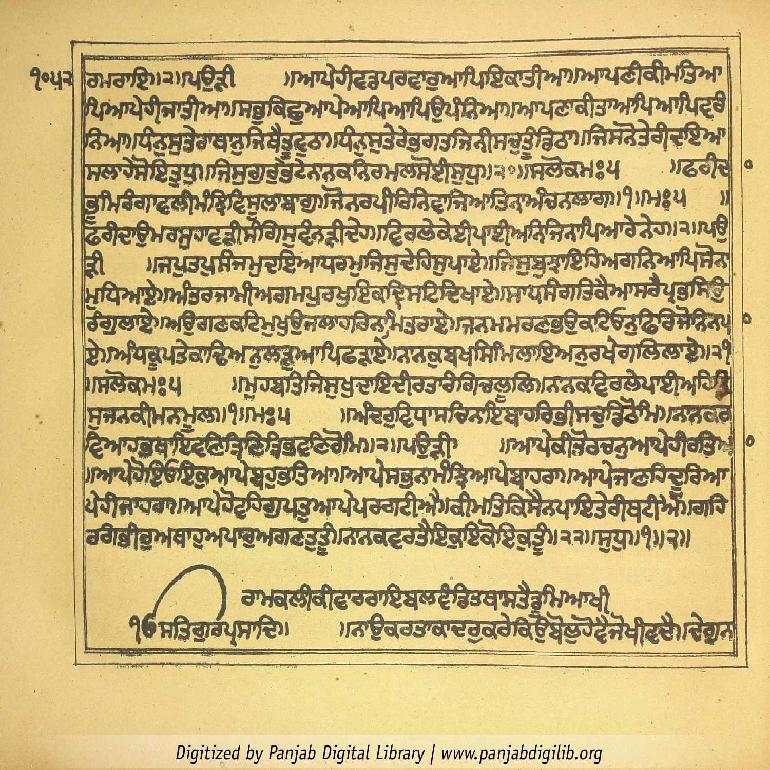 ੧੦੫੨ ਰਮਰਾਇ॥੨॥ਪਉੜੀ ॥ਆਪੇਹੀਵਡਪਰਵਾਰੁਆਪਿਇਕਾਤੀਆ॥ਆਪਣੀਕੀਮਤਿਆ
ਪਿਆਪੇਹੀਜਾਤੀਆ॥ਸਭੁਕਿਛੁਆਪੇਆਪਿਆਪਿਉਪੰਨਿਆ॥ਆਪਣਾਕੀਤਾਆਪਿਆਪਿਵਰੰ
ਨਿਆ॥ਧੰਨੁਸੁਤੇਰਾਥਾਨੁਜਿਥੈਤੂਵੁਠਾ॥ਧੰਨੁਸੁਤੇਰੇਭਗਤਜਿਨੀਸਚੁਤੂੰਡਿਠਾ॥ਜਿਸਨੋਤੇਰੀਦਇਆ
ਸਲਾਹੇਸੋਇਤੁਧੁ॥ਜਿਸੁਗੁਰਭੇਟੇਨਾਨਕਨਿਰਮਲਸੋਈਸੁਧੁ॥੨੦॥ਸਲੋਕਮਃ੫ ॥ਫਰੀਦਾ
ਭੂਮਿਰੰਗਾਵਲੀਮੰਝਿਵਿਸੂਲਾਬਾਗੁ॥ਜੋਨਰਪੀਰਿਨਿਵਾਜਿਆਤਿਨਾਅੰਚਨਲਾਗ॥੧॥ਮਃ੫ ॥
ਫਰੀਦਾਉਮਰਸੁਹਾਵੜੀਸੰਗਿਸੁਵੰਨੜੀਦੇਹ॥ਵਿਰਲੇਕੇਈਪਾਈਅਨਿਜਿਨਾਪਿਆਰੇਨੇਹ॥੨॥ਪਉ
ੜੀ ॥ਜਪੁਤਪੁਸੰਜਮੁਦਇਆਧਰਮੁਜਿਸੁਦੇਹਿਸੁਪਾਏ॥ਜਿਸੁਬੁਝਾਇਹਿਅਗਨਿਆਪਿਸੋਨਾ
ਮੁਧਿਆਏ॥ਅੰਤਰਜਾਮੀਅਗਮਪੁਰਖੁਇਕਦ੍ਰਿਸਟਿਦਿਖਾਏ॥ਸਾਧਸੰਗਤਿਕੈਆਸਰੈਪ੍ਰਭਸਿਉ
ਰੰਗੁਲਾਏ॥ਅਉਗਣਕਟਿਮੁਖੁਉਜਲਾਹਰਿਨਾਮਿਤਰਾਏ॥ਜਨਮਮਰਣਭਉਕਟਿਓਨੁਫਿਰਿਜੋਨਿਨਪਾ
ਏ॥ਅੰਧਕੂਪਤੇਕਾਢਿਅਨੁਲੜੁਆਪਿਫੜਾਏ॥ਨਾਨਕਬਖਸਿਮਿਲਾਇਅਨੁਰਖੇਗਲਿਲਾਏ॥੨੧
॥ਸਲੋਕਮਃ੫ ॥ਮੁਹਬਤਿਜਿਸੁਖੁਦਾਇਦੀਰਤਾਰੰਗਿਚਲੂਲਿ॥ਨਾਨਕਵਿਰਲੇਪਾਈਅਹਿਤਿ
ਸੁਜਨਕੀਮਨਮੂਲਿ॥੧॥ਮਃ੫ ॥ਅੰਦਰੁਵਿਧਾਸਚਿਨਾਇਬਾਹਰਿਭੀਸਚੁਡਿਠੋਮਿ॥ਨਾਨਕਰ
ਵਿਆਹਭਥਾਇਵਣਿਤ੍ਰਿਣਿਤ੍ਰਿਭਵਣਿਰੋਮਿ॥੨॥ਪਉੜੀ ॥ਆਪੇਕੀਤੋਰਚਨੁਆਪੇਹੀਰਤਿਆ
॥ਆਪੇਹੋਇਓਇਕੁਆਪੇਬਹੁਭਤਿਆ॥ਆਪੇਸਭਨਾਮੰਝਿਆਪੇਬਾਹਰਾ॥ਆਪੇਜਾਣਹਿਦੂਰਿਆ
ਪੇਹੀਜਾਹਰਾ॥ਆਪੇਹੋਵਹਿਗੁਪਤੁਆਪੇਪਰਗਟੀਐ॥ਕੀਮਤਿਕਿਸੈਨਪਾਇਤੇਰੀਥਟੀਐ॥ਗਹਿ
ਰਗੰਭੀਰੁਅਥਾਹੁਅਪਾਰੁਅਗਣਤੁਤੂੰ॥ਨਾਨਕਵਰਤੈਇਕੁਇਕੋਇਕੁਤੂੰ॥੨੨॥ਸੁਧੁ॥੧॥੨॥
ਰਾਮਕਲੀਕੀਵਾਰਰਾਇਬਲਵੰਡਿਤਥਾਸਤੈਡੂਮਿਆਖੀ
ੴਸਤਿਗੁਰਪ੍ਰਸਾਦਿ॥ ॥ਨਾਉਕਰਤਾਕਾਦਰੁਕਰੇਕਿਉਬੋਲੁਹੋਵੈਜੋਖੀਵਦੈ॥ਦੇਗੁਨਾ
Digitized by Panjab Digital Library | www.panjabdigilib.org